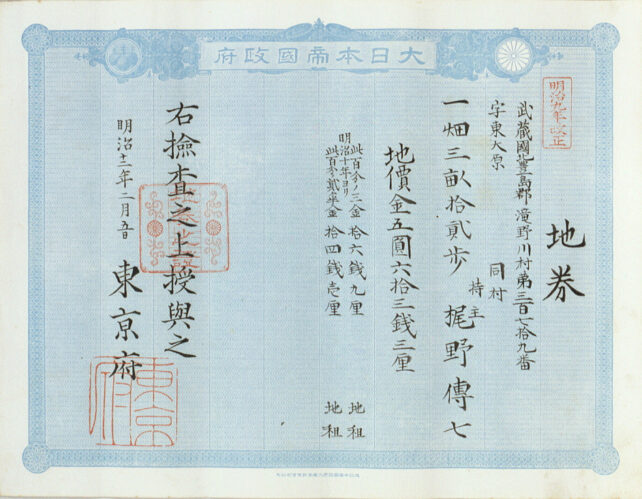 大日本帝國政府
明治九年改正
地券
武藏國北豊島郡滝野川村第三百七拾九番
字東大原
同村
一畑三畝拾貳歩 持主 梶野傳七
地價金五圓六拾三錢三厘
此百分ノ三金 拾六錢九厘 地租
明治十年ヨリ
此百分ノ貳ケ半金 拾四錢壱厘 地租
右撿査之上授與之
明治 年二月五日
東京府
東京府